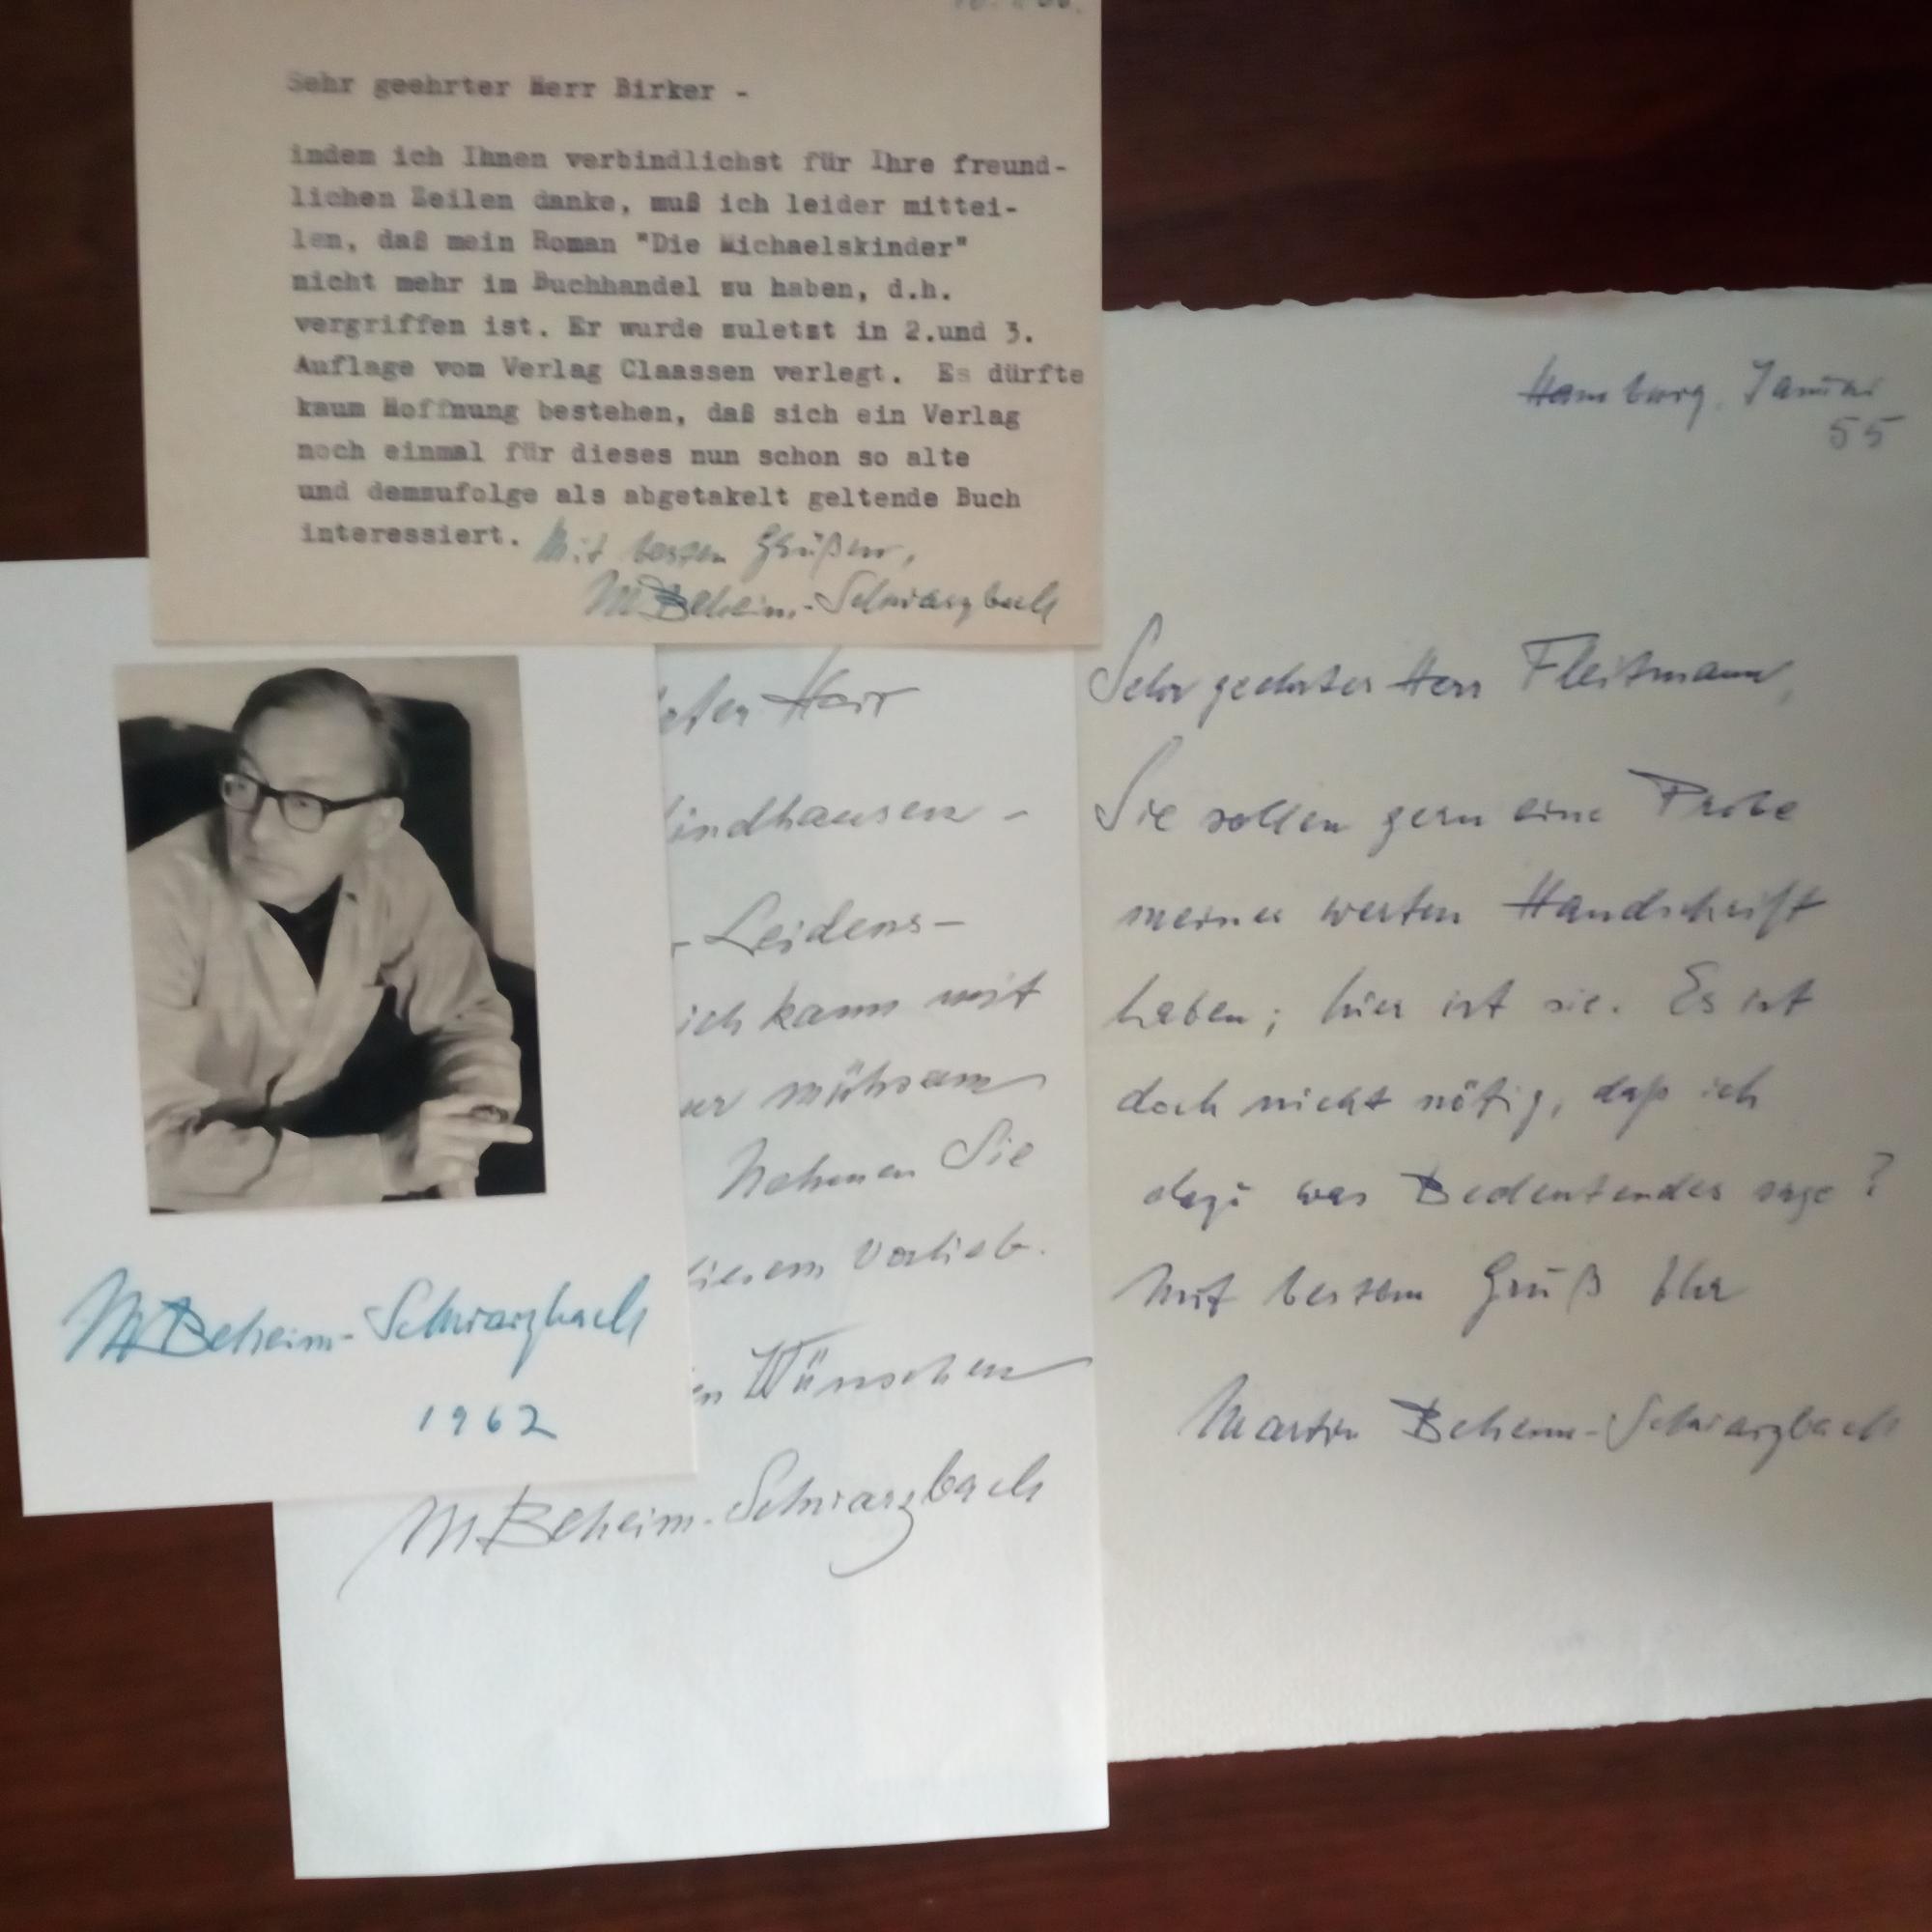 Sehr geehrter Herr Birker -
indem ich Ihnen verbindlichst für Ihre freund-
lichen Zeilen danke, muß ich leider mittei-
len, daß mein Roman "Die Michaelskinder"
nicht mehr im Buchhandel zu haben, d.h.
vergriffen ist. Er wurde zuletzt in 2.und 3.
Auflage vom Verlag Claassen verlegt. Es dürfte
kaum Hoffnung bestehen, daß sich ein Verlag
noch einmal für dieses nun schon so alte
und demzufolge als abgetakelt geltende Buch
interessiert. Mit besten Grüßen,
M Beheim-Schwarzbach
M Beheim-Schwarzbach
1962
Herr
indhausen -
-Leidens-
ich kann mit
mühsam
Nehmen Sie
diesem vorlieb.
en Wünschen
M Beheim-Schwarzbach
Hamburg, Januar
55
Sehr geehrter Herr Fleitmann,
Sie sollen gern eine Probe
meiner werten Handschrift
haben; hier ist sie. Es ist
doch nicht nötig, daß ich
dazu was Bedeutendes sage?
Mit bestem Gruß Ihr
Martin Beheim-Schwarzbach